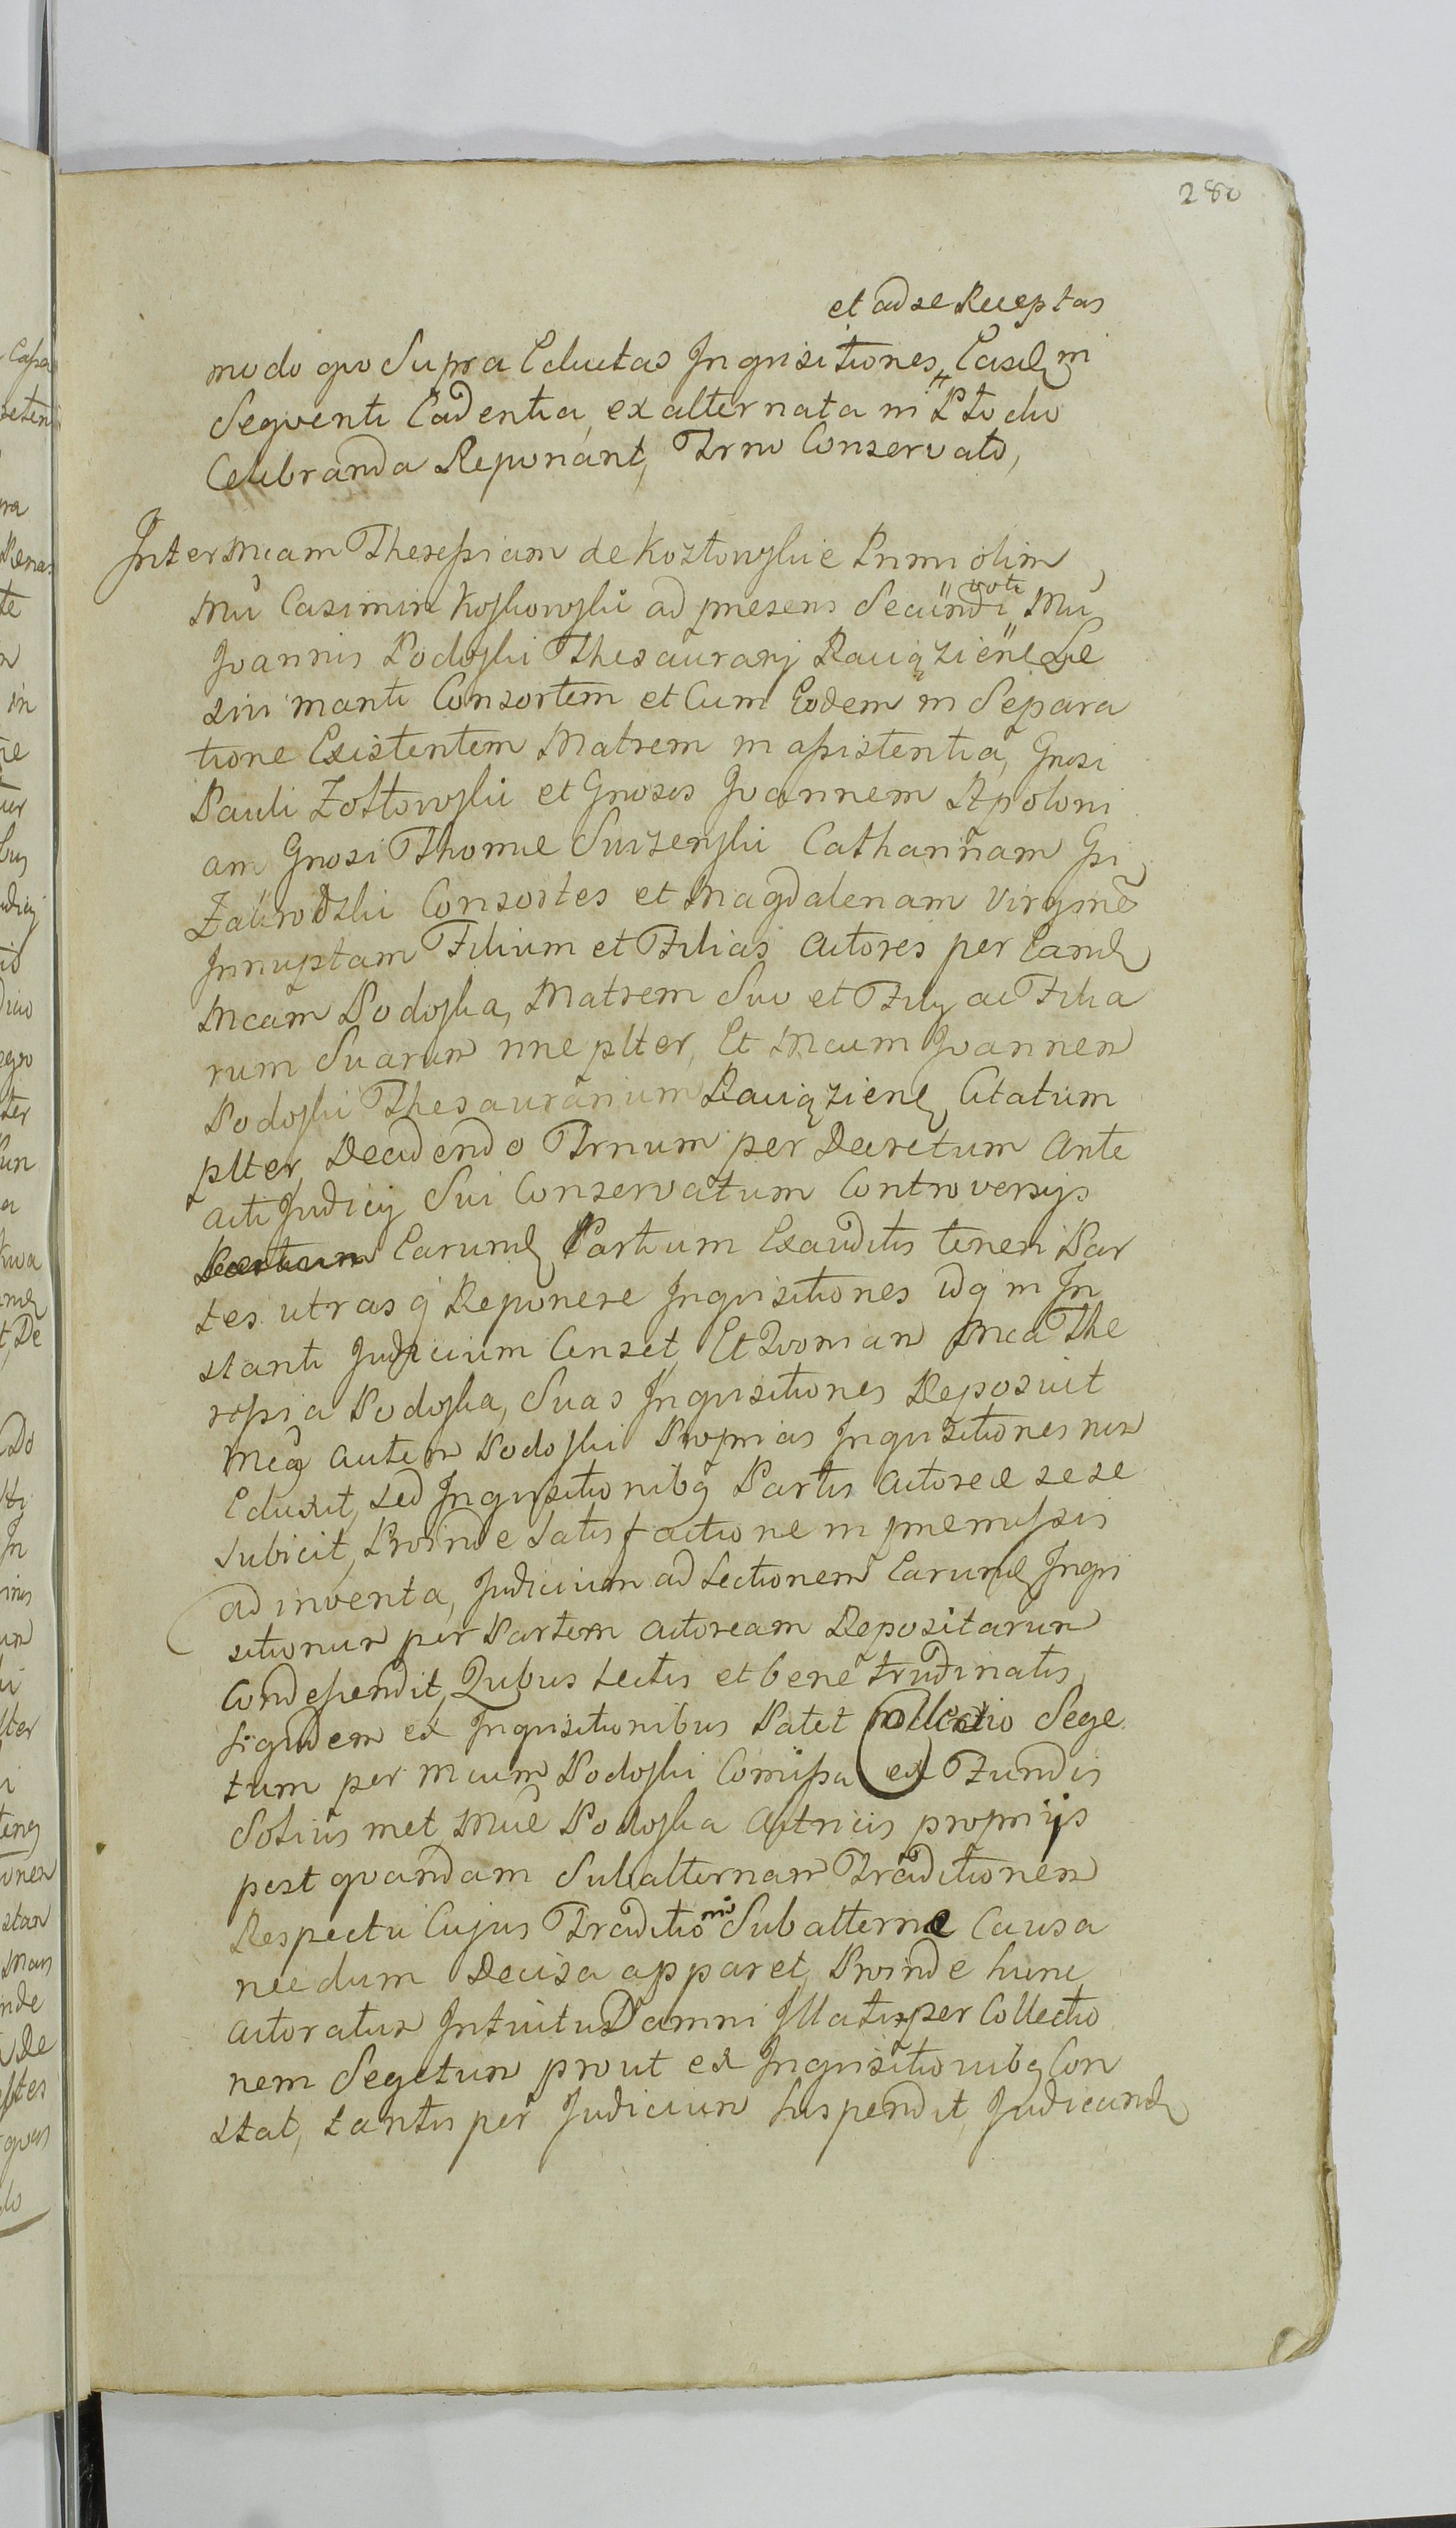 280
et ad se Receptas
modo quo Supra Eductas Inquisitiones, Easdem in
Seqventi Cadentia, ex alternata in Ptto dio
Celebranda Reponant, Trno Conservato,
Inter Mcam Theressiam de Koztowskie Primi olim
Mci Casimiri Kossowski ad presens Secundi voti Mci
Joannis Podoski Thesaurarij Raviązien Le
sivi mariti Consortem et Cum Eodem in Separa
tione Existentem Matrem in assistentia, Gnosi
Pauli Zołtowski et Gnosos Joannem Apoloni
am Gnosi Thomae Swizenski Catharinam Gsi
Zakrodzki Consortes et Magdalenam Virgine
Innuptam Filium et Filias Actores per Eand
Mcam Podoska, Matrem Suo et Filij ac Filia
rum Suarum nne plter, Et Mcum Joannem
Podoski Thesaurarium Raviązien, Citatum
plter, Decidendo Trnum per Decretum Ante
acti Judicij Sui Conservatum Controversijs
Earund Partium Exauditis teneri Par
tes utrasq Reponere Inquisitiones idq in In
stanti Judicium Censet, Et Qvoniam Mca The
ressia Podoska, Suas Inquisitiones Deposuit
Mcq autem Podoski Proprias Inquisitiones non
Eduxit, sed Inquisitionibq Partis Actoreae sese
subicit, Proinde satisfactione in praemissis
ad inventa, Judicium ad Lectionem Earund Inqui
sitionum per Partem Actoream Depositarum
Condescendit, Quibus Lectis et bene trudinatis,
siquidem ex Inquisitionibus Patet Collectio Sege
tum per Mcum Podoski Comissa ex Fundis
Solius met Mcae Podoska Actricis proprijs
post qvandam Subalternam Traditionem
Respectu Cujus Traditionis Subalternae Causa
necdum Decisa apparet, Proinde hunc
Actoratum Intuitu Damni Illati per Collectio
nem Segetum prout ex Inquisitionibq Con
stat, tantis per Judicium Suspendit, Judicand